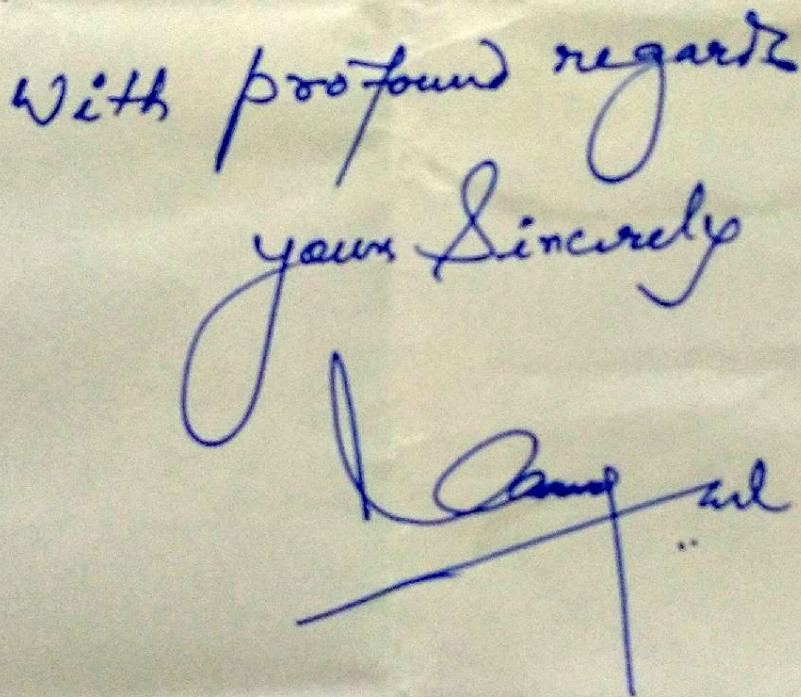 With profound regards
yours Sincerely